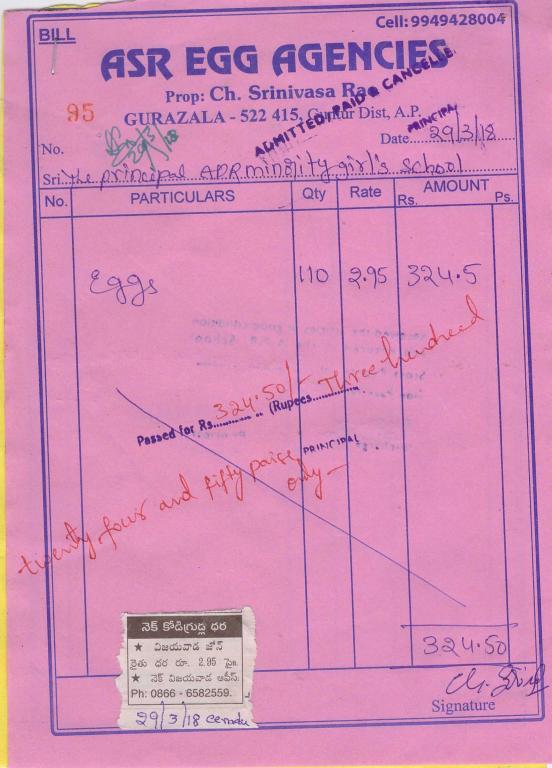 BILL
Cell: 9949428004
ASR EGG AGENCIES
Prop: Ch. Srinivasa Rao
95
GURAZALA - 522 415, Guntur Dist, A.P.
ADMITTED, PAID & CANCELLED
PRINCIPAL
No.
29/3/18
Date 29/3/18
Sri The principal APR minority girl's school
No. PARTICULARS Qty Rate AMOUNT
Rs. Ps.
Eggs 110 2.95 324.5
Passed for Rs. 324.50/- (Rupees Three hundred
PRINCIPAL
twenty four and fifty paise
only
324.50
నెక్ కోడిగ్రుడ్ల ధర
★ విజయవాడ జోన్
రైతు ధర రూ. 2.95 పైళ
★ నెక్ విజయవాడ ఆఫీస్:
Ph: 0866 - 6582559.
29/3/18
Signature